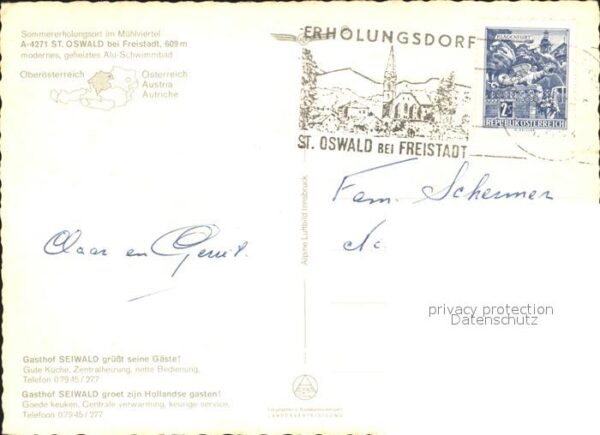 Sommererholungsort im Mühlviertel
A-4271 ST. OSWALD bei Freistadt, 609 m
modernes, geheiztes Alu-Schwimmbad
Oberösterreich
Österreich
Austria
Autriche
ERHOLUNGSDORF
ST. OSWALD BEI FREISTADT
KLAGENFURT
2S
REPUBLIK ÖSTERREICH
Fam. Schermer
Alpine Luftbild Innsbruck
Claar en Gerrit.
privacy protection
Datenschutz
Gasthof SEIWALD grüßt seine Gäste!
Gute Küche, Zentralheizung, nette Bedienung,
Telefon 07945/277
Gasthof SEIWALD groet zijn Hollandse gasten!
Goede keuken, Centrale verwarming, keurige service,
Telefoon 07945/277